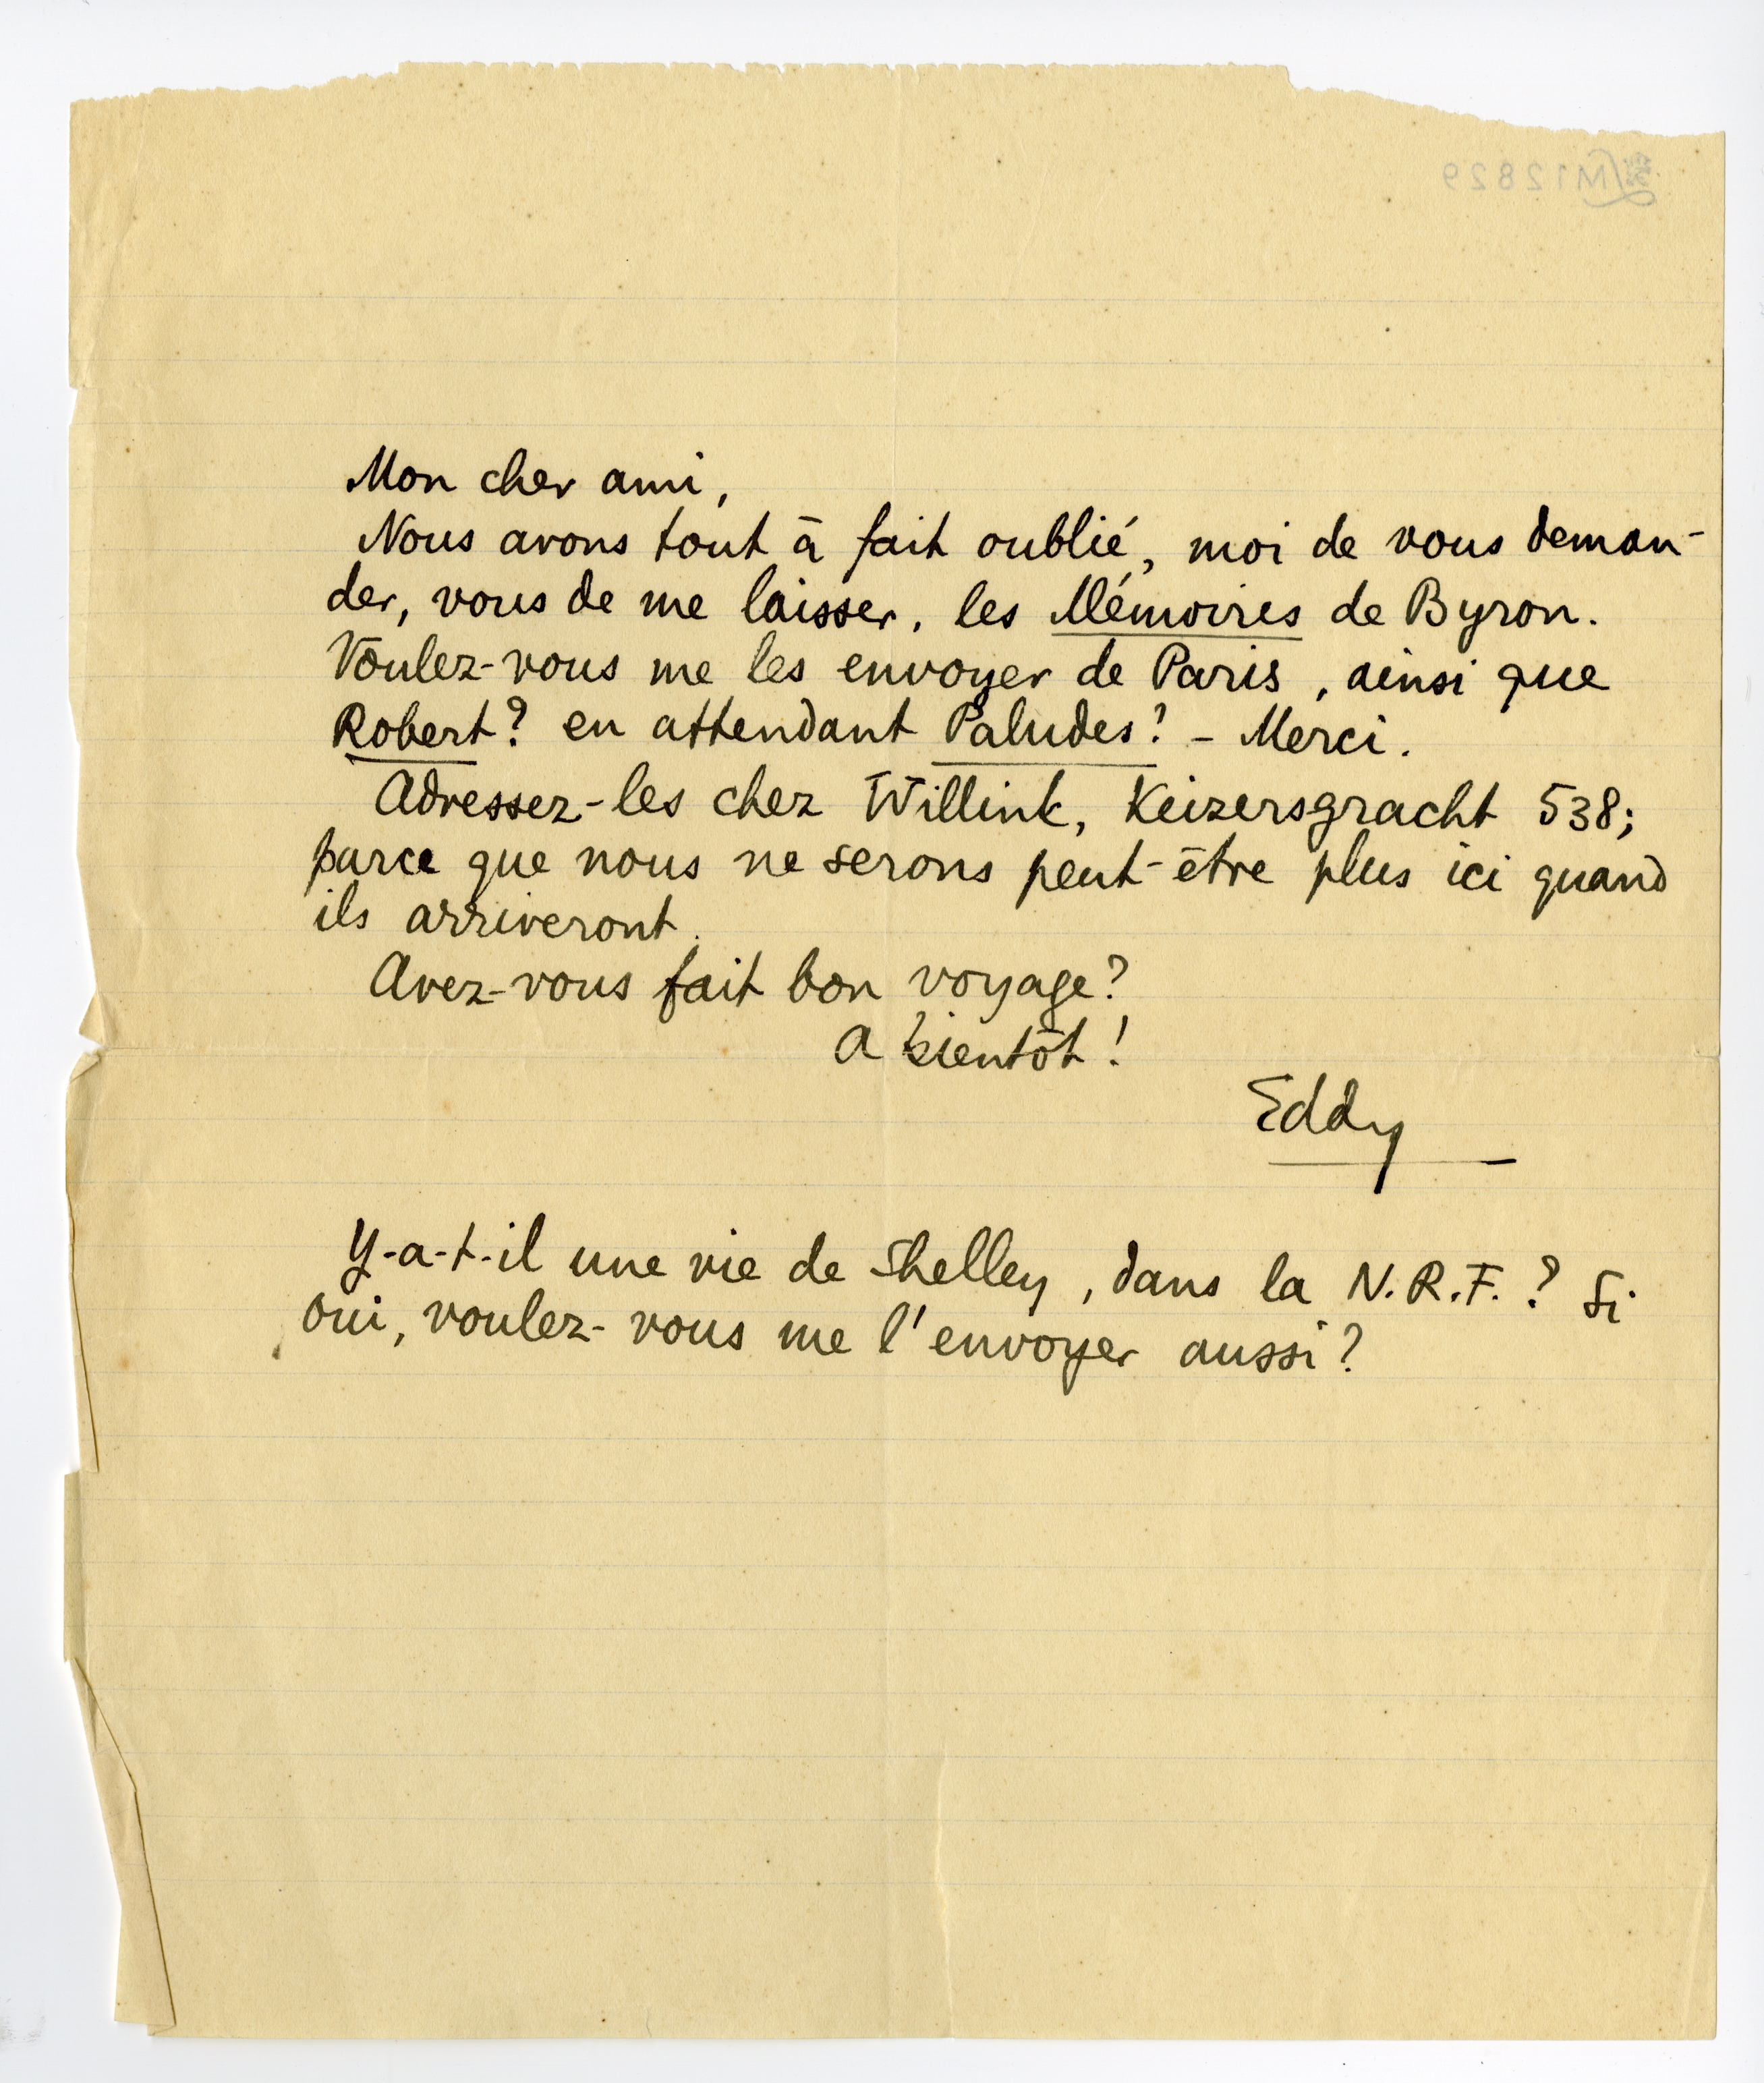 M12829
Mon cher ami,
Nous avons tout à fait oublié, moi de vous deman-
der, vous de me laisser, les Mémoires de Byron.
Voulez-vous me les envoyer de Paris, ainsi que
Robert? en attendant Paludes? – Merci.
Adressez-les chez Willink, Keizersgracht 538;
parce que nous ne serons peut-être plus ici quand
ils arriveront.
Avez-vous fait bon voyage?
A bientôt!
Eddy
Y-a-t-il une vie de Shelley, dans la N.R.F.? Si
oui, voulez-vous me l'envoyer aussi?